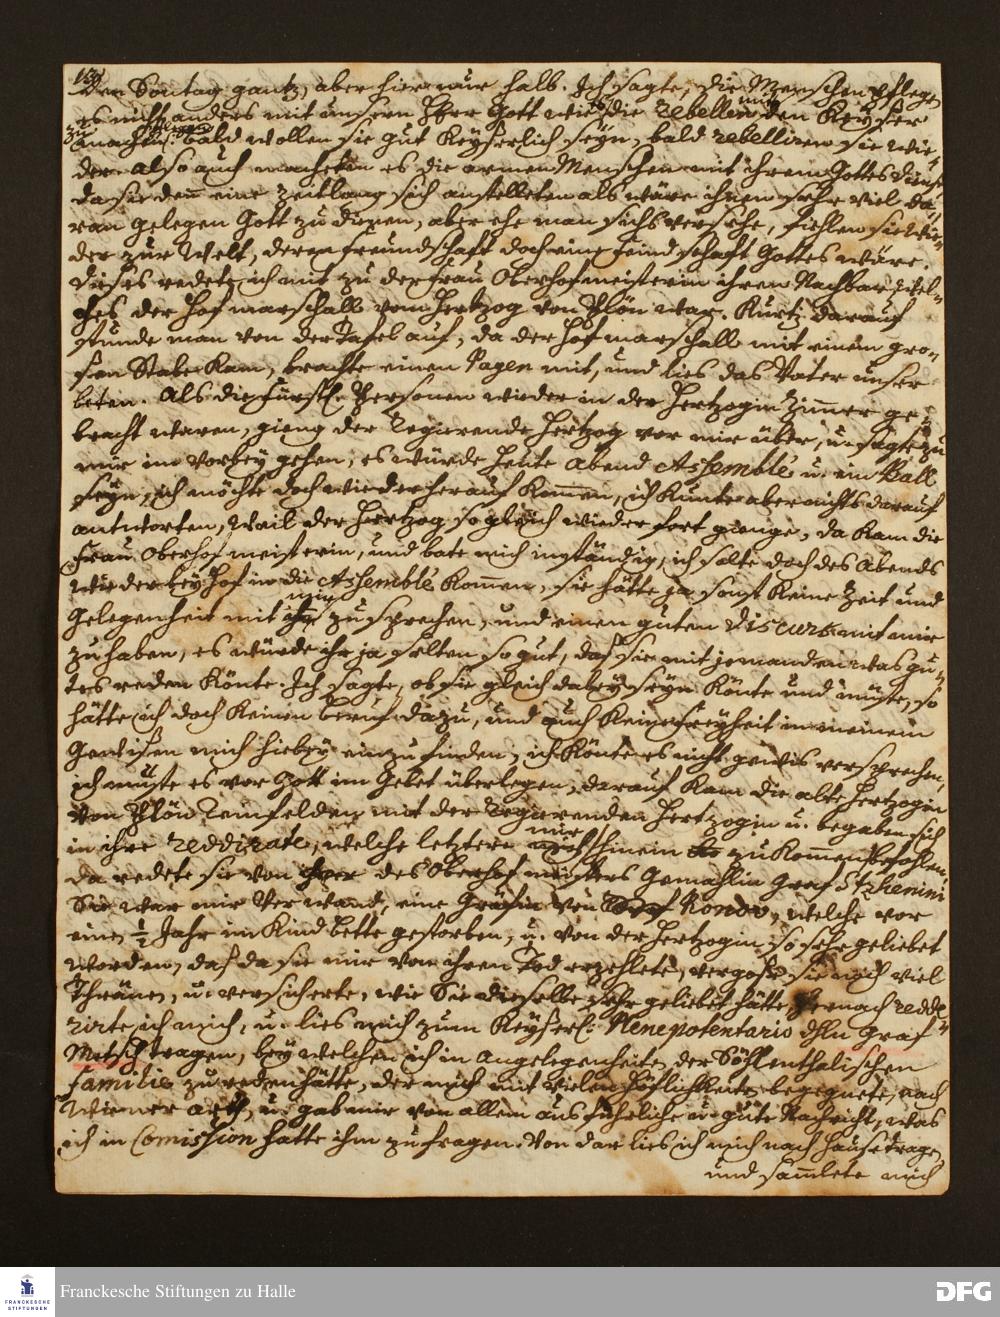 den Sontag gantz, aber hier nur halb. Ich sagte, die Menschen pflegen
es nicht anders mit unsern Herr Gott wie die rebellen den Keyser
zu machen: bald wollen sie gut Keyserlich seyn, bald rebelliren sie wie-
der. also auch machten es die armen Menschen mit ihrem Gottes dienst
da sie denn eine zeitlang sich anstelleten als wäre ihnen sehr viel da-
ran gelegen Gott zu dienen, aber ehe man sichs versehe, fiehlen sie wie-
der zur Welt, deren freundschaft doch eine feindschaft Gottes wäre.
Dieses redete ich mit zu der Frau Oberhofmeisterin ihren Nachbar,
der Hof marschall vom Hertzog von Plön war. Kurtz darauf
stunde man von der Tafel auf, da der Hof marschall mit einem gro-
sen Stabe kam, brachte einen Pagen mit, und lies das Vater unser
beten. Als die Fürstl. Personen wieder in der Hertzogin Zimmer ge-
bracht waren, gieng der Regierende Hertzog vor mir über, u. sagte zu
mir im vorbey gehen, es würde heute Abend Assemblé u. ein Ball
seyn, ich möchte doch wieder herauf kommen, ich kunte aber nichts darauf
antworten, weil der Hertzog so gleich wieder fort gienge, da kam die
Frau Oberhof meisterin, und bate mich inständig, ich solte doch des Abends
wieder bey Hof in die Assemblé kommen, sie hätte ja sonst keine Zeit und
Gelegenheit mit mir zu sprechen, und einen guten Discurs mit mir
zu haben, es würde ihr ja selten so gut, daß sie mit jemanden was gu-
tes reden könte. Ich sagte, ob sie gleich dabey seyn könte und müste, so
hätte ich doch keinen beruf dazu, und auch keine freyheit in meinem
Gewissen mich hiebey einzufinden, ich könte es nicht gewis versprechen,
ich müste es vor Gott im Gebet überlegen, darauf kam die alte Hertzogin
von Plön Reinfelden mit der Regierenden Hertzogin u. begaben sich
in ihre reddirate, welche letztere mir hinein zu kommen befohlen,
da redete sie von des Oberhof meisters Gemahlin Graf
Sie war mir verwand, eine Gräfin von Ronov, welche vor
einen ½ Jahr im Kindbette gestorben, u. von der Hertzogin so sehr geliebet
worden, daß da sie mir von ihren Tod erzehlete, vergoße sie noch viel
Thränen, u. versicherte, wie Sie dieselbe sehr geliebet hätte, hernach reddi-
rirte ich mich, u. lies mich zum Keyserl: Plenepotentario Graf
Metsch tragen, bey welchen ich in angelegenheiten der Söhlenthalischen
familie zu reden hätte, der mich mit vielen höflichkeiten begegnete, nach
Wiener arth, u. gab mir von allem ausführliche u. gute Nachricht, was
ich in Comission hatte ihm zu fragen. Von dar lies ich mich nach Hause tragen
und sammlete mich
Franckesche Stiftungen zu Halle
FRANCKESCHE STIFTUNGEN
DFG